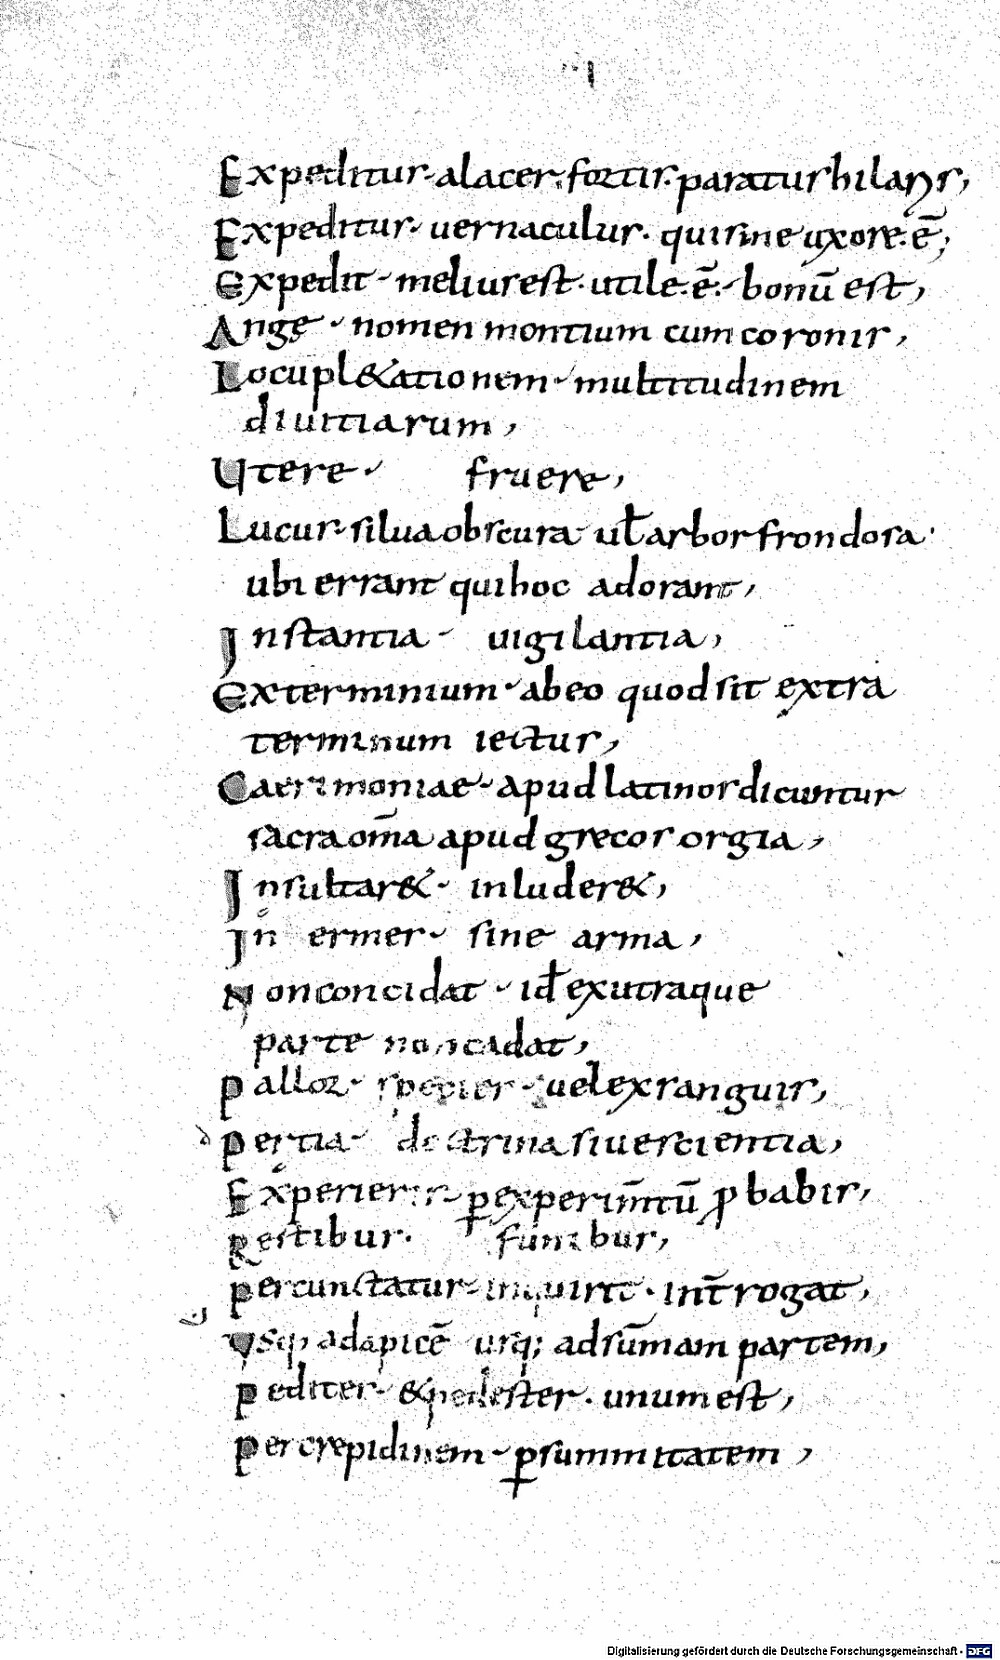 Expeditus· alacer· fortis· paratus hilaris,
Expeditus· uernaculus· qui sine uxore· ē;
Expedit· melius est· utile· ē· bonū est,
Ange· nomen montium cum coronis,
Locupl&ationem· multitudinem
diuitiarum,
Utere· fruere,
Lucus· silua obscura uƚ arbor frondosa·
ubi errant qui hoc adorant,
Instantia· uigilantia,
Exterminium· ab eo quod sit extra
terminum iectus,
Caerimoniae· apud latinos dicuntur
sacra om̄a apud grecos orgia,
Insultar&· inluder&,
In ermes· sine arma,
Non concidat· id̄ ex utraque
parte non cadat,
Pallor· species· uel exsanguis,
Peritia· doctrina siue scientia,
Experieris· ꝑ experim̄tū ꝓbabis,
Restibus· funibus,
Percunctatur· inquirit· int̄rogat,
Usq; ad apicē usq; ad sūmam partem,
Pedites· & pedester· unum est,
Per crepidinem· ꝑ summitatem,
Digitalisierung gefördert durch die Deutsche Forschungsgemeinschaft - DFG